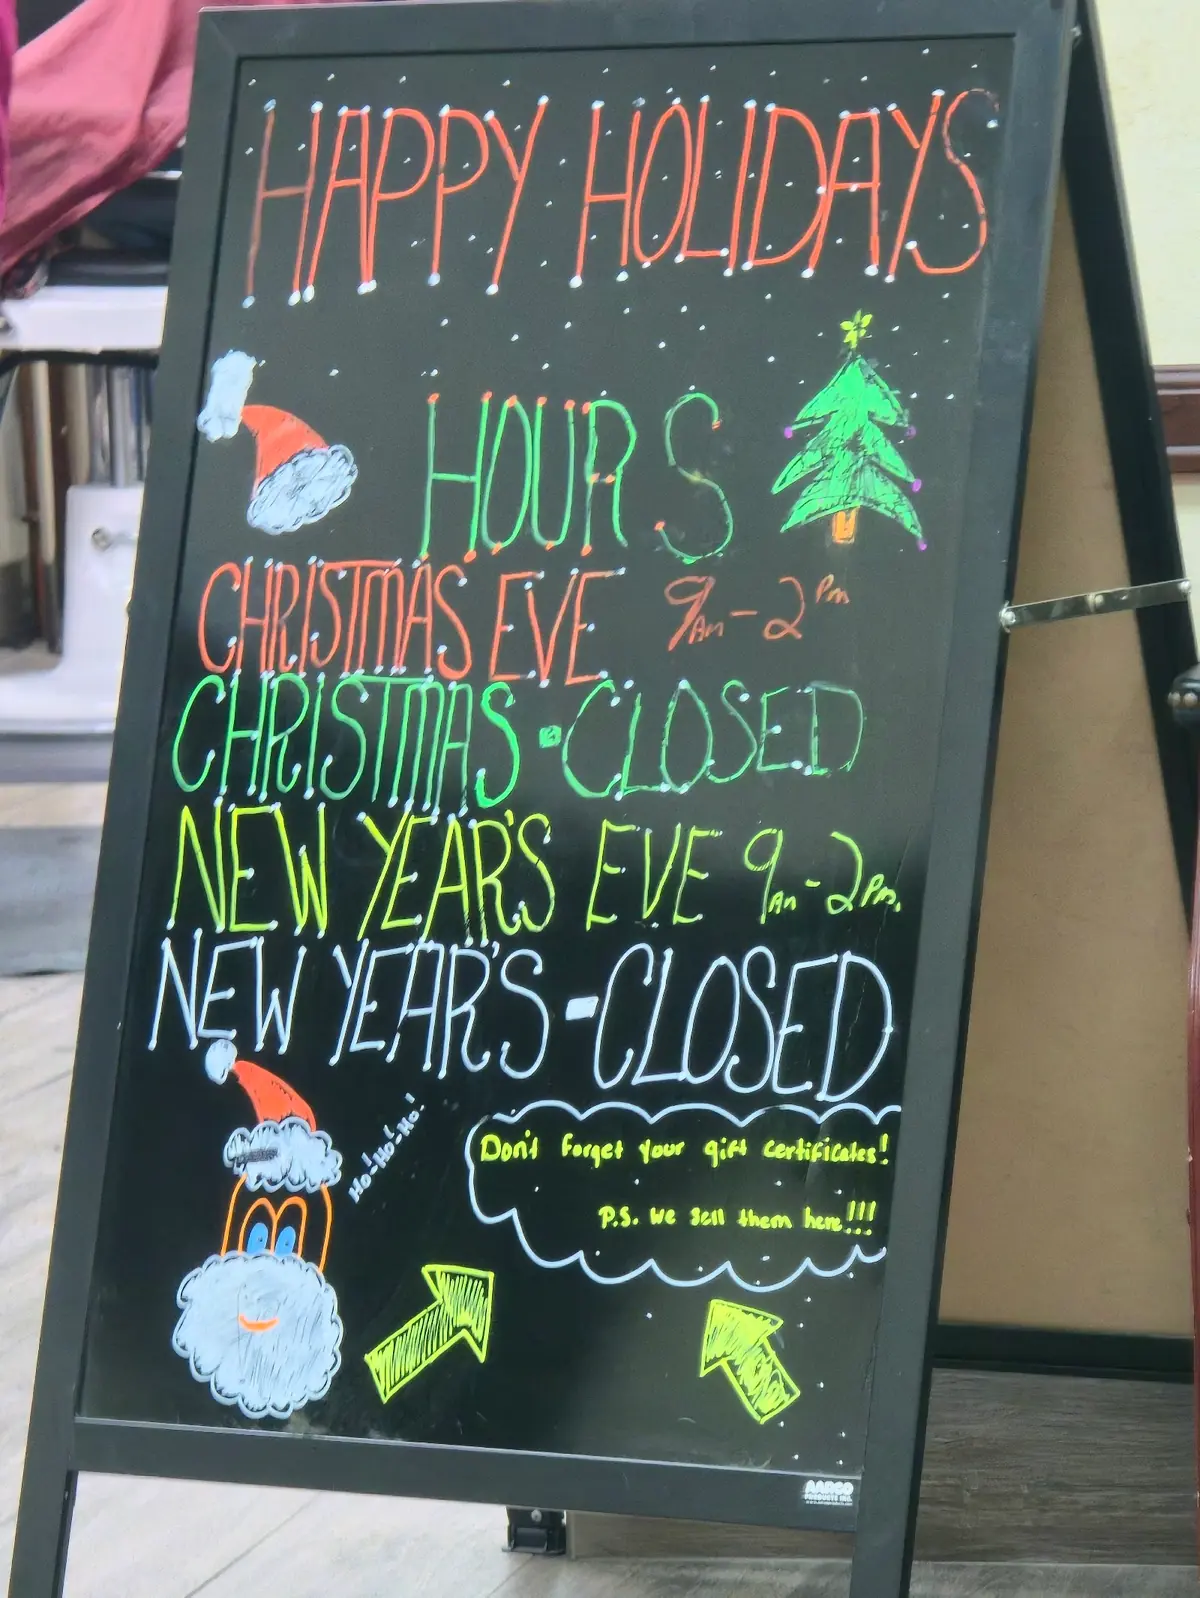 HAPPY HOLIDAYS
HOURS
CHRISTMAS EVE 9AM - 2PM
CHRISTMAS - CLOSED
NEW YEAR'S EVE 9AM - 2PM.
NEW YEAR'S - CLOSED
Ho! Ho! Ho!
Don't forget your gift certificates!
P.S. We sell them here!!!
AARCO
PRODUCTS INC.